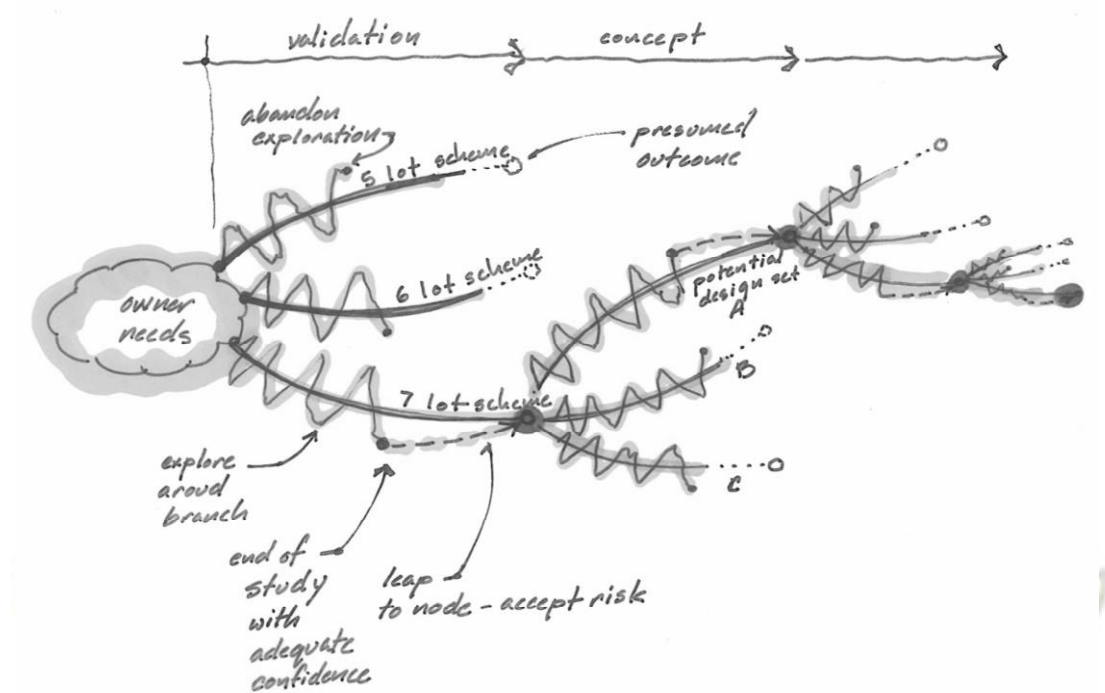 validation
concept
abandon
exploration
presumed
outcome
5 lot scheme
6 lot scheme
owner
needs
potential
design set
A
7 lot scheme
B
C
explore
aroud
branch
end of
study
with
adequate
confidence
leap
to node - accept risk